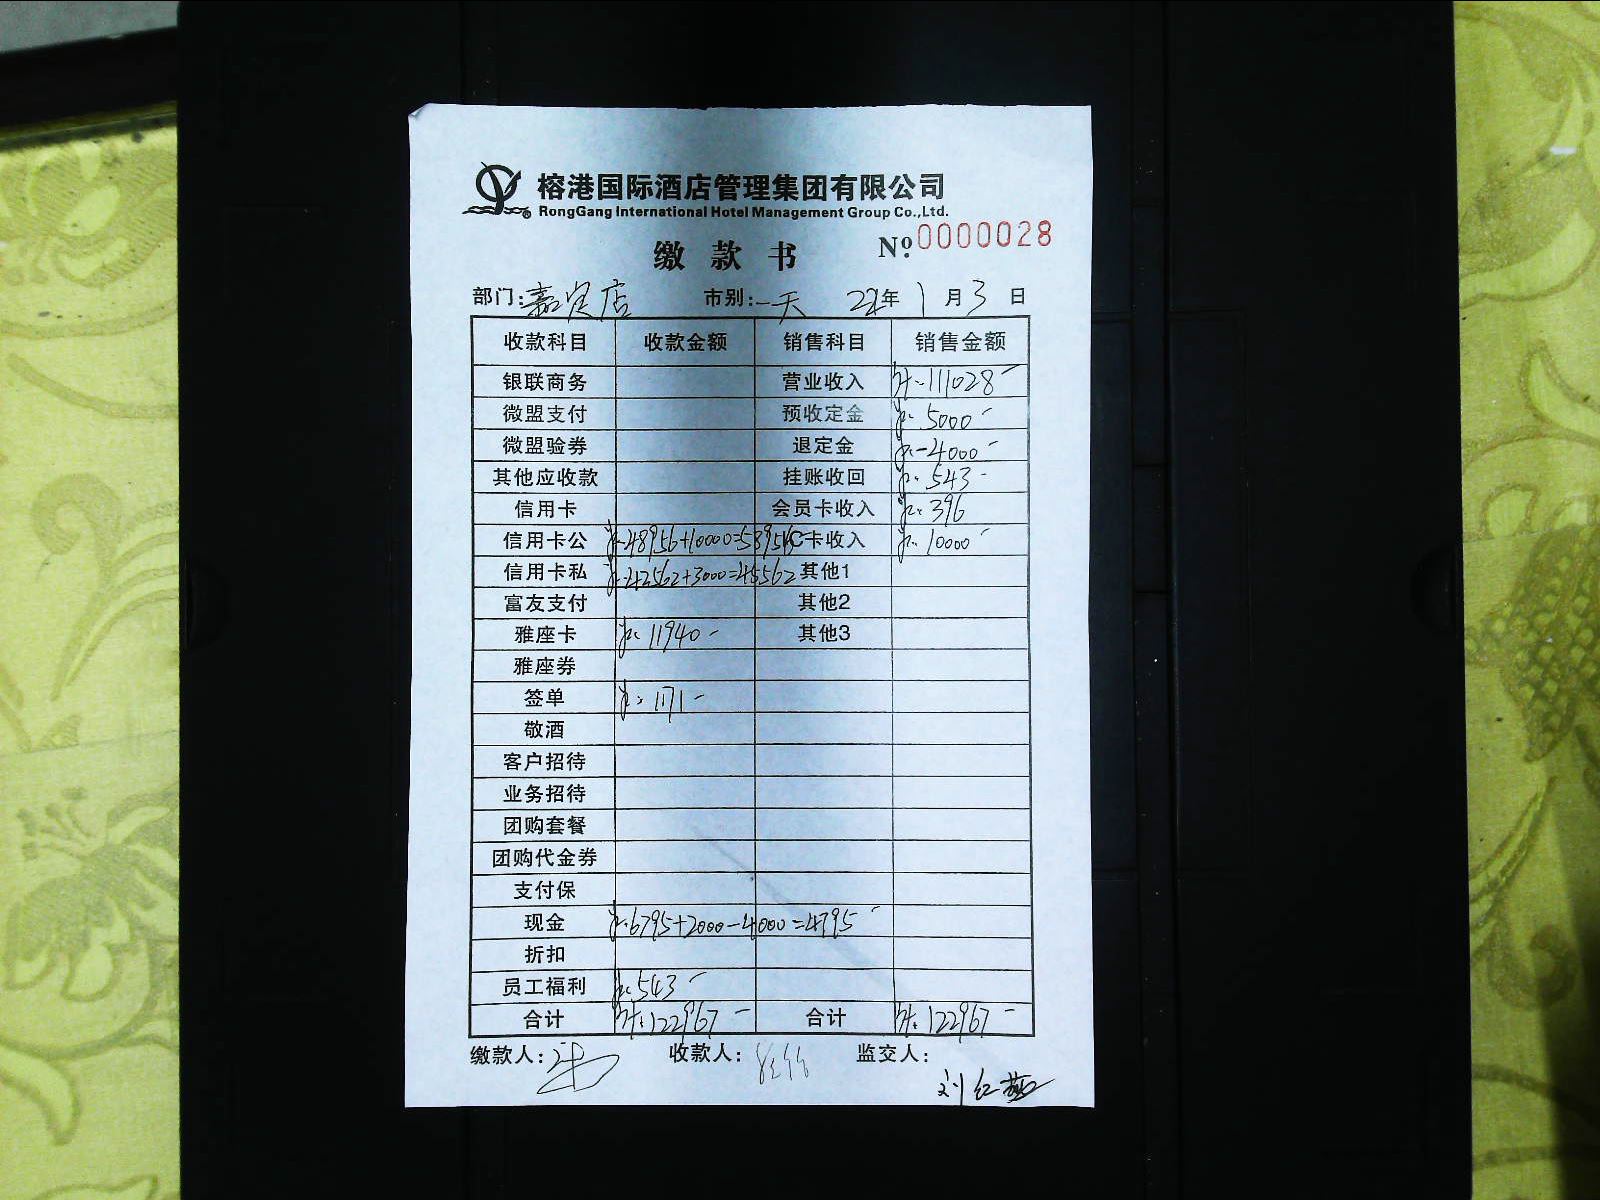 榕港国际酒店管理集团有限公司
RongGang International Hotel Management Group Co.,Ltd.
缴款书 №:0000028
部门:嘉定店 市别:一天 22年1月3日
收款科目 收款金额 销售科目 销售金额
银联商务 营业收入 计:111028-
微盟支付 预收定金 5000-
微盟验券 退定金 -4000-
其他应收款 挂账收回 543-
信用卡 会员卡收入 396
信用卡公 48956+10000=58956 IC卡收入 10000-
信用卡私 42562+3000=45562 其他1
富友支付 其他2
雅座卡 11940- 其他3
雅座券
签单 1171-
敬酒
客户招待
业务招待
团购套餐
团购代金券
支付保
现金 6795+2000-4000=4795-
折扣
员工福利 543-
合计 计:122967- 合计 计:122967-
缴款人: 收款人: 监交人:
刘红燕